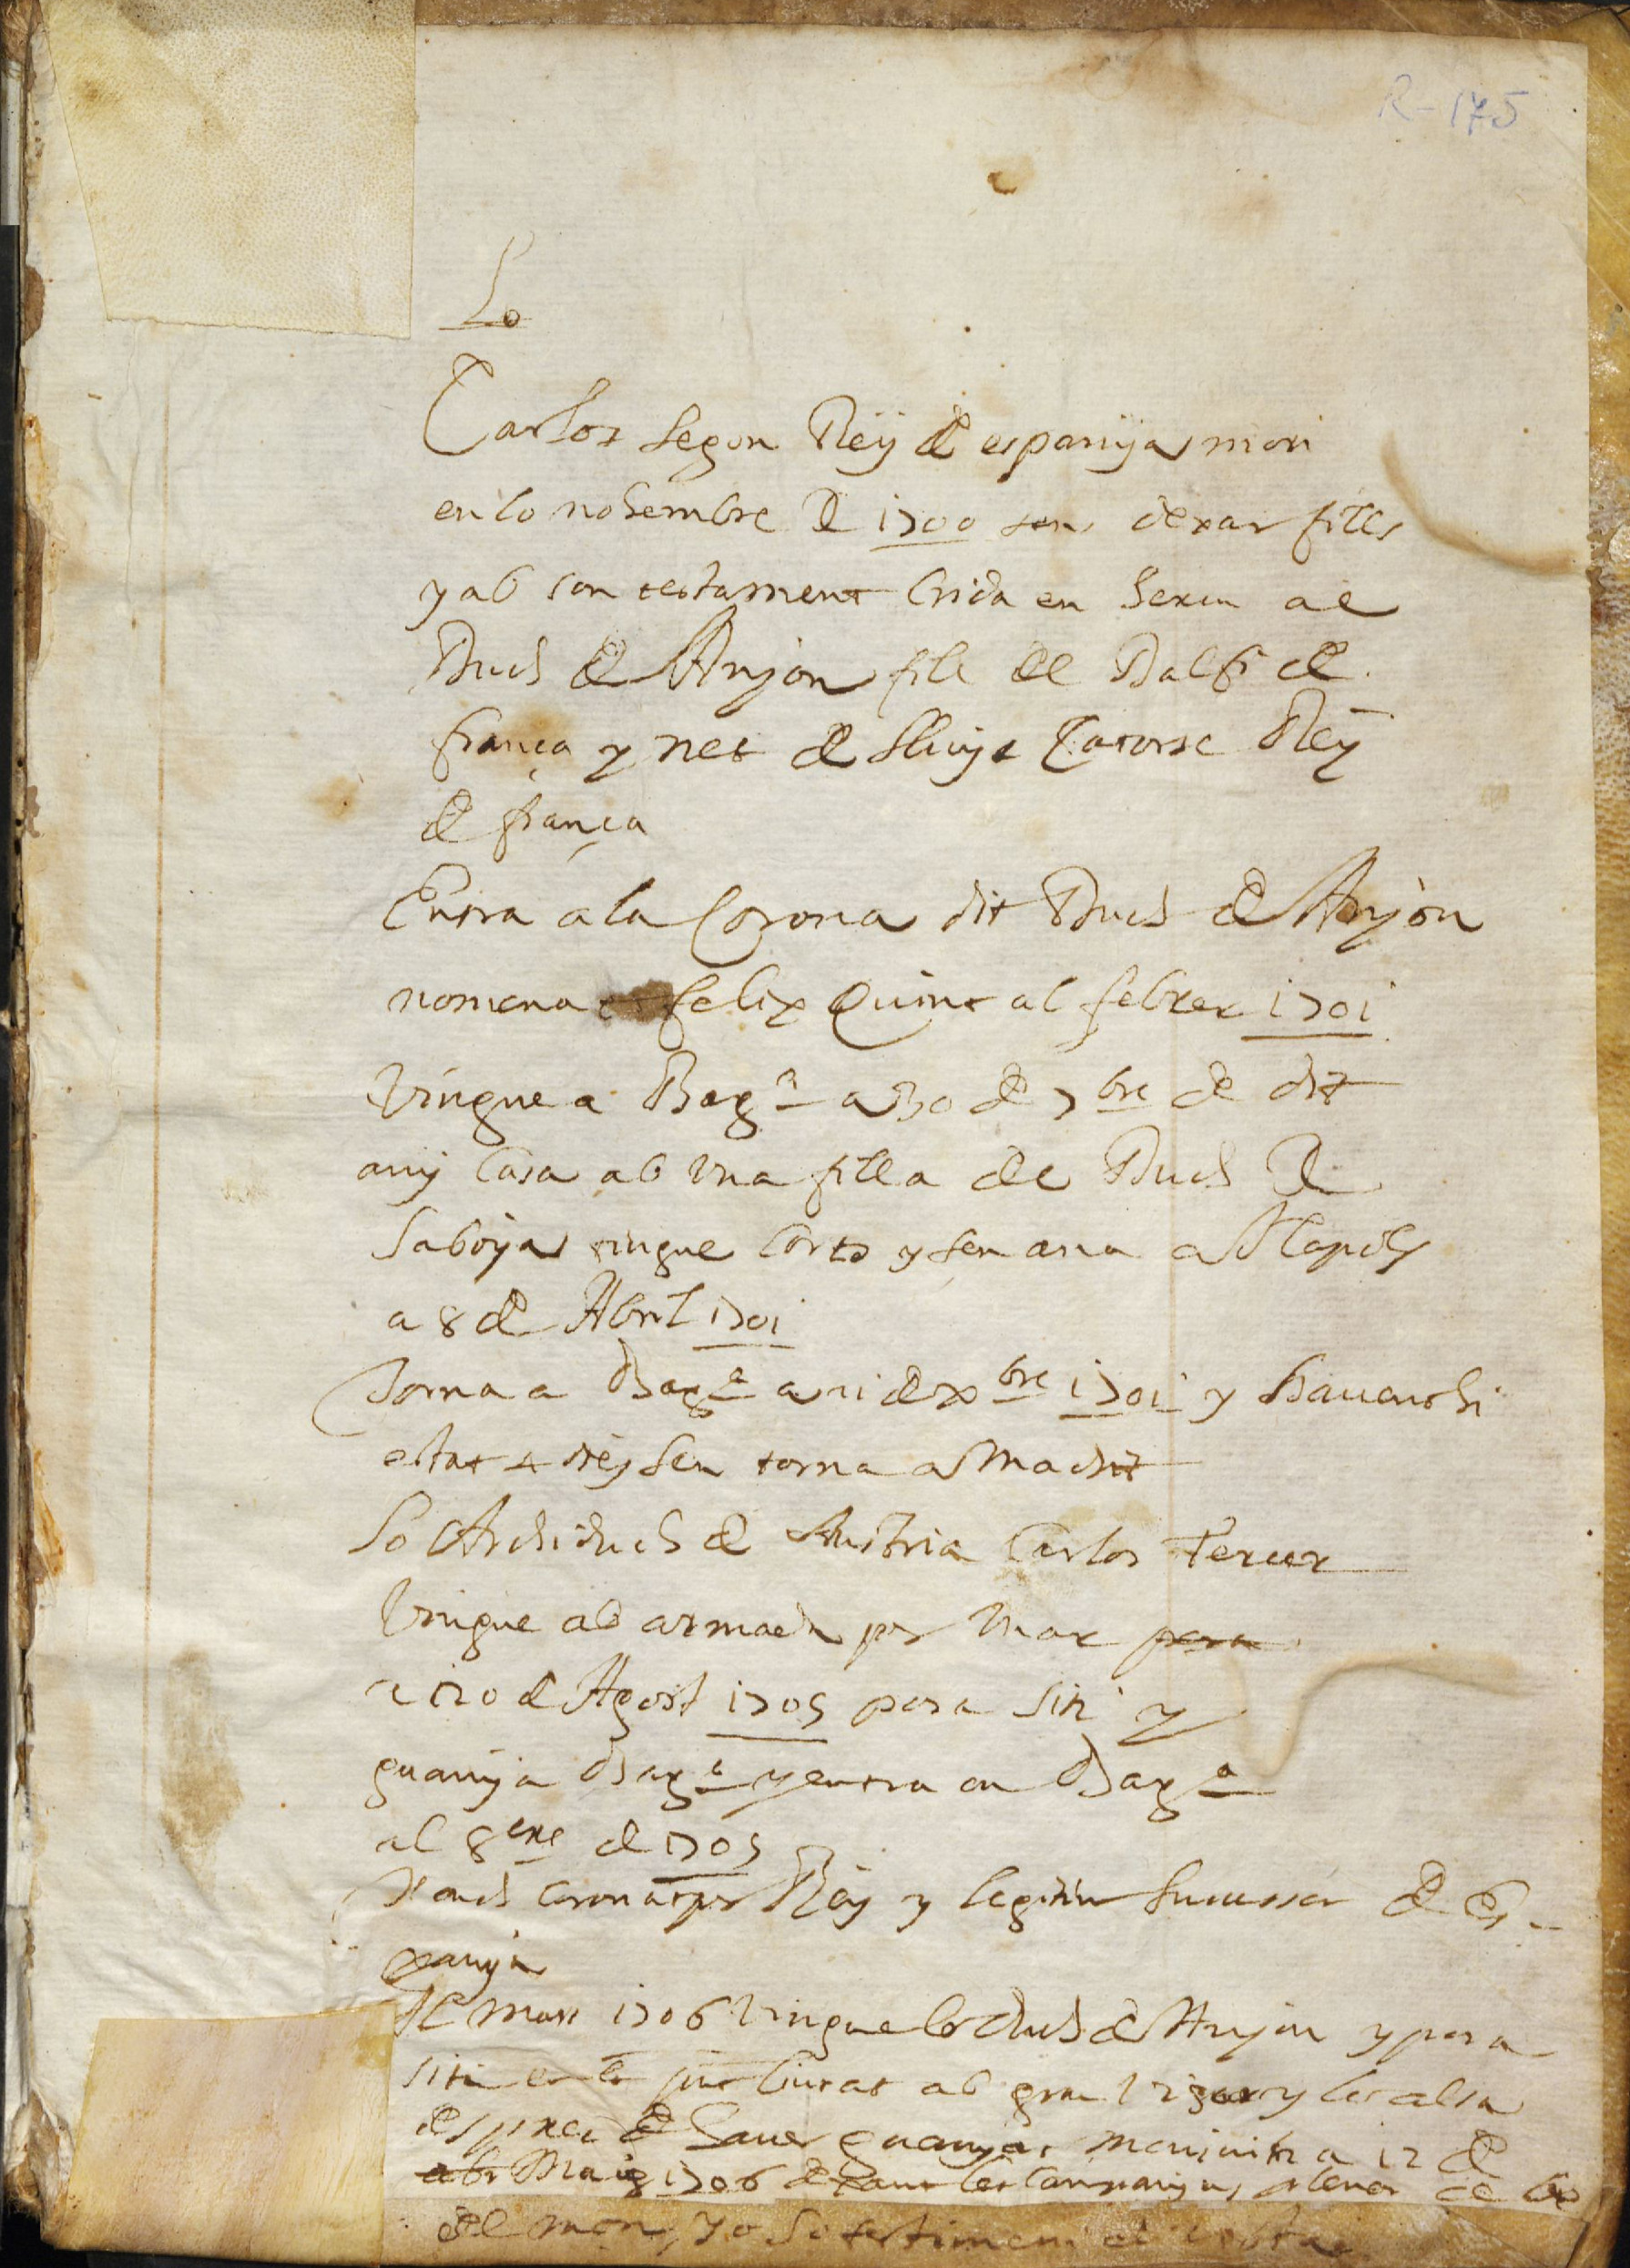 R-175
Lo
Carlos segon Reÿ de espanÿa mori
en lo nohembre de 1700 sens dexar fills
y ab son testament crida en hereu al
Duch de Anjou fill del Dalfi de
frança y net de lluys Catorse Reÿ
de frança
Entra a la Corona dit Duch de Anjou
nomenat felip Quint al febrer 1701
Vingue a Barna a 30 de 7bre de dit
anÿ casa ab una filla del Duch de
Saboya tingue corts y sen ana a Napols
a 8 de Abril 1701
Torna a Barna a de xbre 1701 y havent hi
estat 4 dies sen torna a Madrit
Lo Archiduch de Austria Carlos Tercer
Vingue ab armada per mar posa
de Agost 1705 posa siti y
guanya Barna y entra en Barna
al 8bre de 1705
coronat per Reÿ y legitim successor de Es-
panya
Al Mars 1706 Vingue lo duch de Anjou y posa
siti ciutat ab gran vigor y lo alsa
despues de haver guanyat Monjuich a 12 de
Maig 1706 dexant les campanyes plenes de
del mon, yo so testimoni de vista